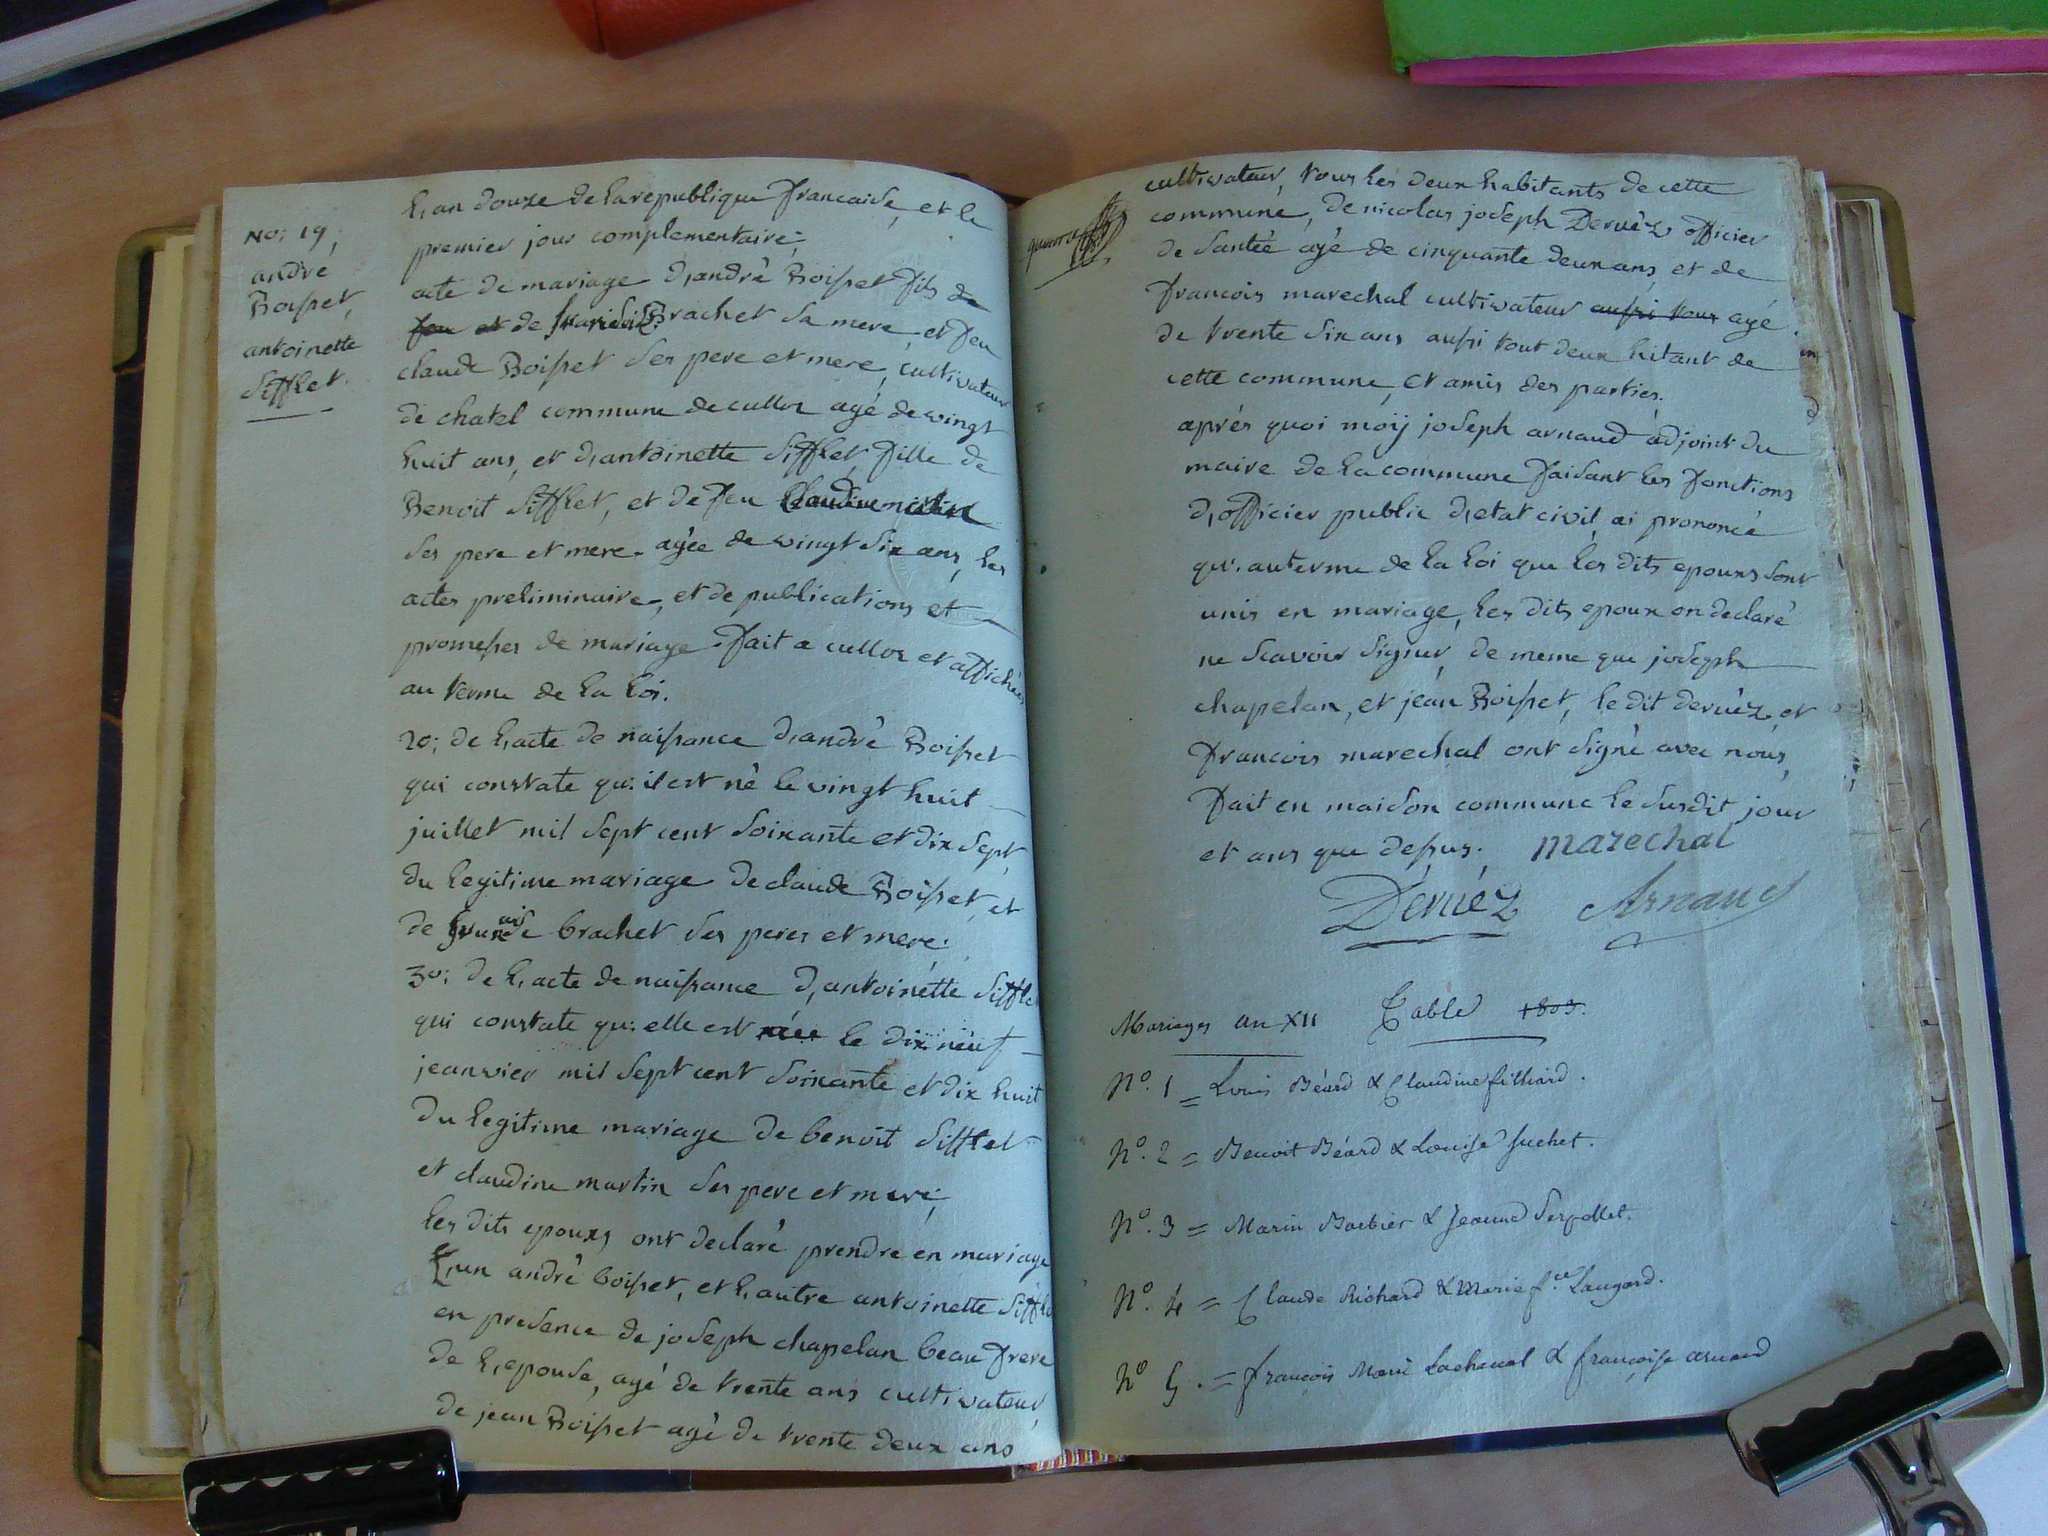 No: 19,
andré
Boisset,
antoinette
Sifflet.
L,an douze de la republique francaise, et le
premier jour complementaire;
acte de mariage d,andré Boisset fils de
feu et de francoise Brachet sa mere et feu
claude Boisset ses pere et mere, cultivateur
de chatel commune de culloz agé de vingt
huit ans, et d,antoinette Sifflet, fille de
Benoit Sifflet, et de feu Claudine martin
ses pere et mere. agée de vingt six ans, les
actes preliminaire, et de publications et
promesses de mariage fait a culloz et affichées
au terme de la loi.
20; de l,acte de naissance d,andré Boisset
qui constate qu: il est né le vingt huit
juillet mil sept cent soixante et dix sept,
du legitime mariage de claude Boisset, et
de francoise brachet ses peres et mere.
30; de l,acte de naissance d,antoinette Siffle
qui constate qu: elle est née le dix neuf
jeanvier mil sept cent soixante et dix huit
du legitime mariage de benoit Sifflet
et claudine martin ses pere et mere;
les dits epouxs ont declaré prendre en mariage
L,un andré boisset, et l,autre antoinette Siffle
en presence de joseph chapelan beau frere
de l,epouse, agé de trente ans cultivateur,
de jean Boisset agé de trente deux ans
cultivateur, tous les deux habitants de cette
commune, de nicolas joseph Deruéz officier
de santée agé de cinquante deux ans, et de
francois marechal cultivateur aussi tous agé
de trente six ans aussi tout deux hitant de
cette commune, et amis des parties.
aprés quoi moij joseph arnaud adjoint du
maire de la commune faisant les fonctions
d,officier public d,etat civil, ai prononcé
qu: au terme de la loi que les dits epouxs sont
unis en mariage, les dits epoux on declaré
ne scavoir signer, de meme que joseph
chapelan, et jean Boisset, le dit deruéz et
francois marechal ont signé avec nous,
fait en maison commune le susdit jour
et ans que dessus. marechal
Déruéz Arnaud
Mariages an XII Table 1803.
No. 1 = Louis Béard & Claudine filliard.
No. 2 = Benoit Béard & Louise Suchet.
No. 3 = Marin Barbier & Jeanne Serpollet.
No. 4 = Claude Richard & Marie f.ce Laugard.
No 5. = françois Marie Lachenal & françoise arnaud